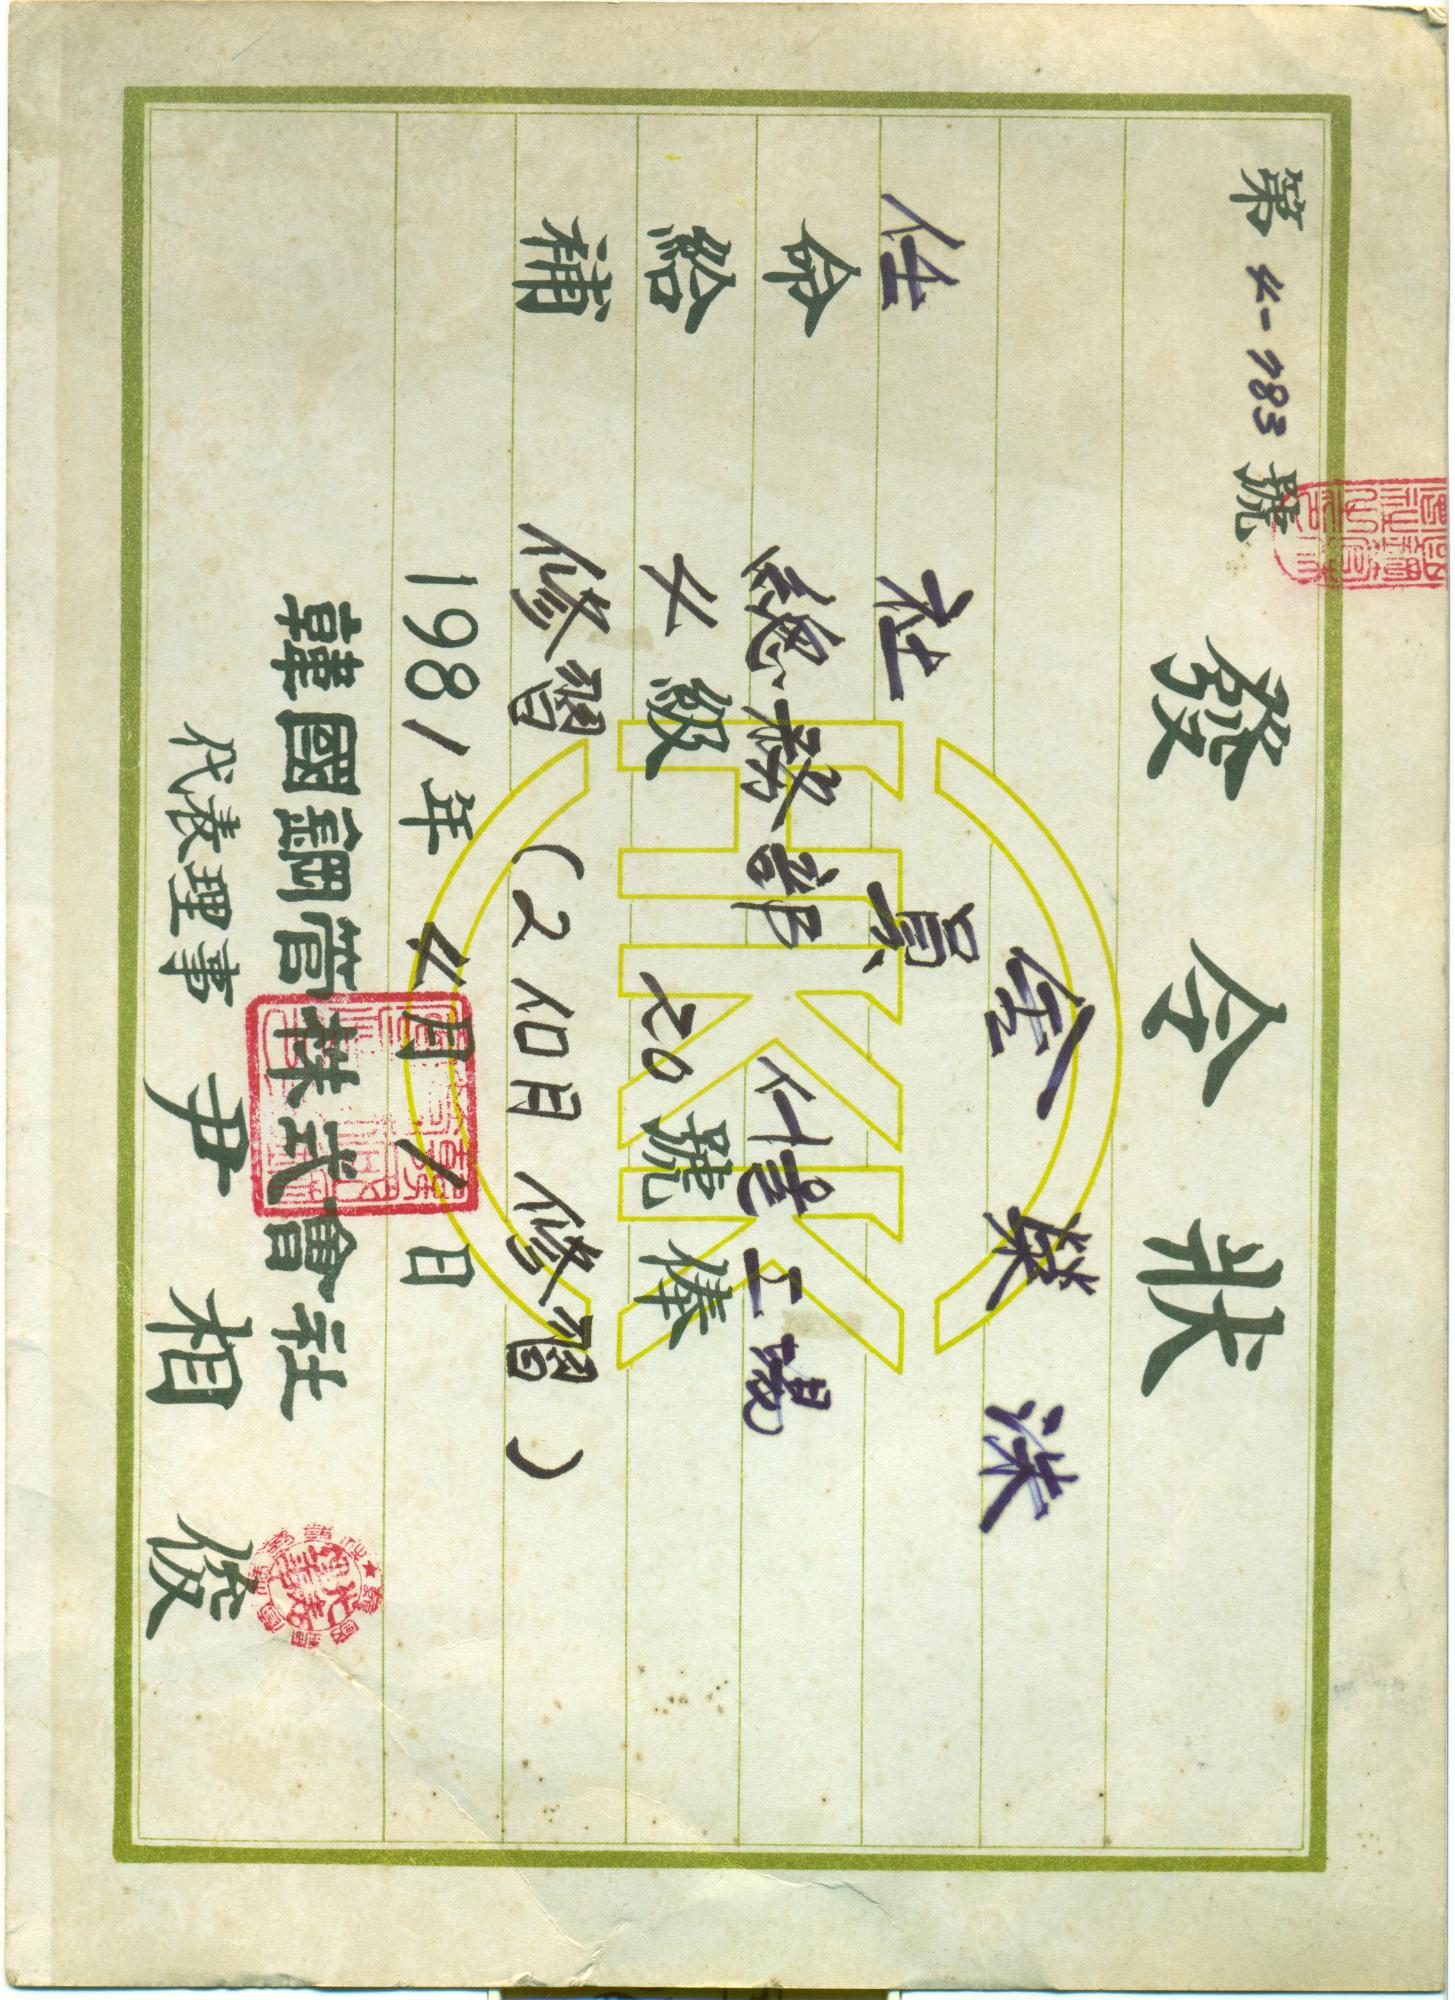 第 4-783 號
發令狀
金 榮 洙
任 社員
命 總務部 서울工場
給 4級 20號俸
補 修習 (2個月 修習)
1981年 4月 1日
韓國鋼管株式會社
代表理事 尹相俊
HKK